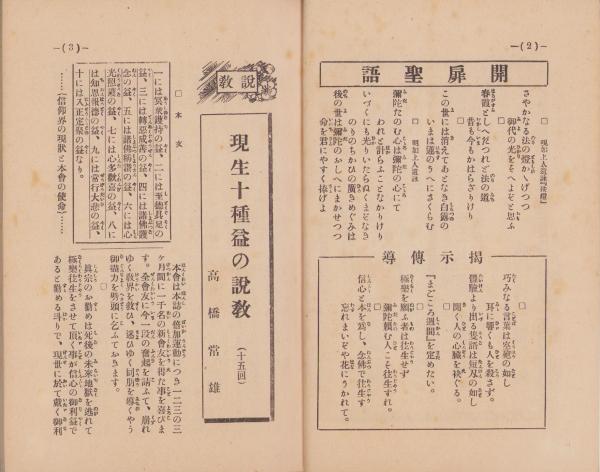 —( 2 )—
開扉聖語
□ 現如上人道詠(法燈)
さやかなる法の燈かゝげつつ
御代の光をそへよぞと思ふ
□
春霞としへだつれど法の道
昔も今もかはらざりけり
□
この世には消えてあとなき白露の
いまは蓮のうへにさくらむ
□ 明如上人道詠
彌陀たのむ心は彌陀の心にて
われとはからふことなかりけり
いづくにも光りいたらぬくまぞなき
のりのちかひの廣きめぐみは
□
後の世は彌陀のおしへにまかせつつ
命を君にやすく捧げよ
揭示傳導
□
巧みなる言葉は空砲の如し
耳に響くも人を殺さず。
體驗より出る隻語は短刄の如し
聞く人の心臟を抉ぐる。
□
『まごころ週間』を定めたい。
□
極樂を願ふ者は往生せず
彌陀賴む人こそ往生すれ。
□
信心と本を爲し、念佛で往生す
忘れまいぞや花にうかれて。
—( 3 )—
說教
現生十種益の說敎 (十五回)
高橋常雄
□ 本文
一には冥衆護持の益、二には至德具足の
益、三には轉惡成善の益、四には諸佛護
念の益、五には諸佛稱讚の益、六には心
光照護の益、七には心多歡喜の益、八に
は知恩報德の益、九には常行大悲の益、
十には入正定聚の益なり。
……(信仰界の現狀と本會の使命)……
本會は本誌の倍加運動につき一二三の三
ケ月間に一千名の新會友を得た事を喜びま
す。全會友に今一段の奮起を請ふて、崩れ
ゆく敎界を救ひ、迷ひゆく同朋を導くやう
御盡力を劈頭に乞ふておきます。
□
眞宗のお勸めは死後の未來地獄を逃れて
極樂往生をさせて頂く事が信心の御利益で
あると勸める計りで、現世に於て戴く御利